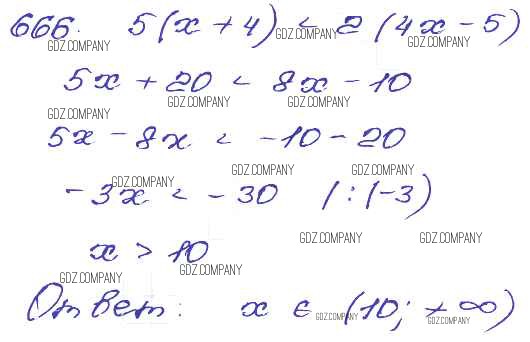 666. 5(x + 4) < 2(4x - 5)
GDZ.COMPANY GDZ.COMPANY GDZ.COMPANY
5x + 20 < 8x - 10
GDZ.COMPANY GDZ.COMPANY
GDZ.COMPANY
5x - 8x < -10 - 20
GDZ.COMPANY GDZ.COMPANY GDZ.COMPANY
-3x < -30 |:(-3)
GDZ.COMPANY GDZ.COMPANY
x > 10
GDZ.COMPANY GDZ.COMPANY
Ответ: x ∈ (10; +∞)
GDZ.COMPANY GDZ.COMPANY